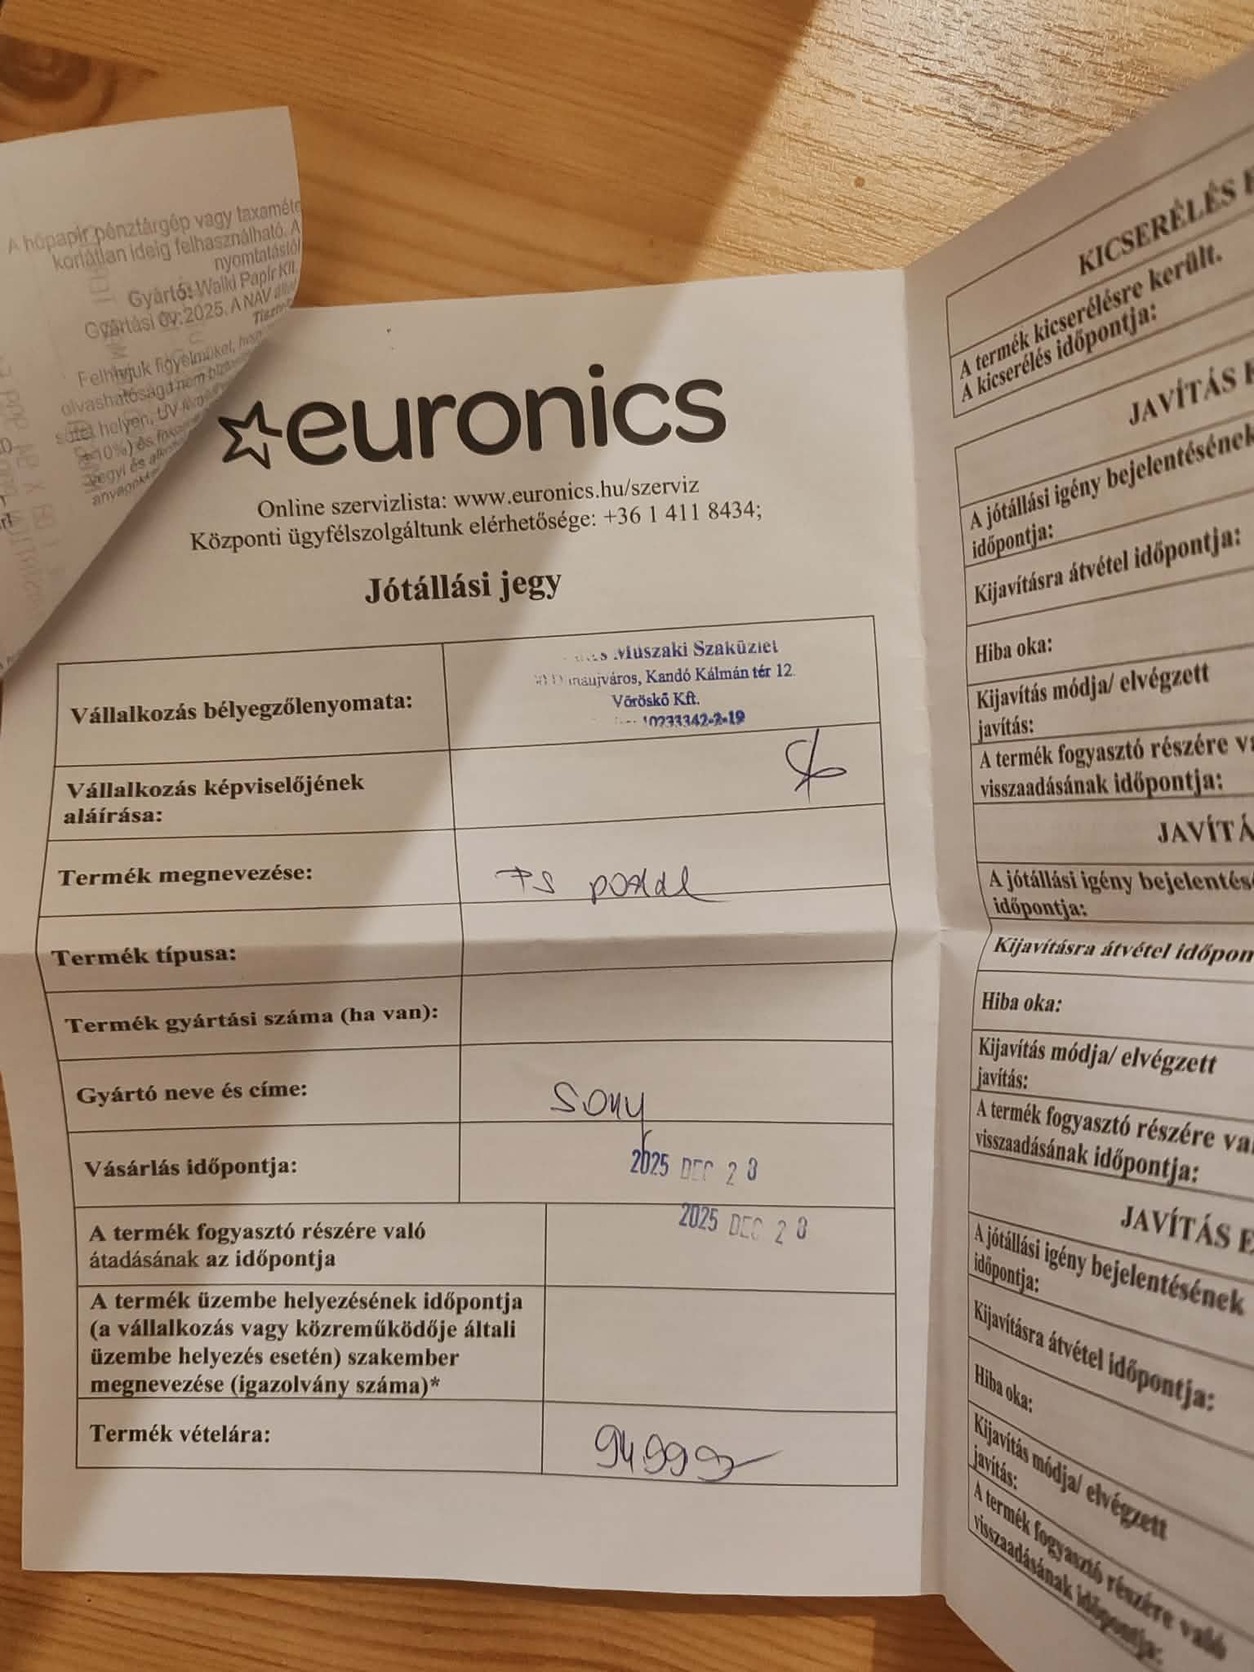 A hőpapír pénztárgép vagy taxaméte
korlátlan ideig felhasználható. A
nyomtatástól
Gyártó: Walki Papír Kft.
Gyártási év:2025. A NAV
Felhívjuk figyelmüket, hogy
olvashatóságá nem
sötét helyen, UV
10%) és
vegyi és
anyagokt
euronics
Online szervizlista: www.euronics.hu/szerviz
Központi ügyfélszolgáltunk elérhetősége: +36 1 411 8434;
Jótállási jegy
Vállalkozás bélyegzőlenyomata:
Műszaki Szaküzlet
naújváros, Kandó Kálmán tér 12.
Vöröskő Kft.
10233342-2-19
Vállalkozás képviselőjének
aláírása:
Termék megnevezése: PS portal
Termék típusa:
Termék gyártási száma (ha van):
Gyártó neve és címe: Sony
Vásárlás időpontja: 2025 DEC 23
A termék fogyasztó részére való
átadásának az időpontja
2025 DEC 23
A termék üzembe helyezésének időpontja
(a vállalkozás vagy közreműködője általi
üzembe helyezés esetén) szakember
megnevezése (igazolvány száma)*
Termék vételára: 94999
KICSERÉLÉS E
A termék kicserélésre került.
A kicserélés időpontja:
JAVÍTÁS E
A jótállási igény bejelentésének
időpontja:
Kijavításra átvétel időpontja:
Hiba oka:
Kijavítás módja/ elvégzett
javítás:
A termék fogyasztó részére va
visszaadásának időpontja:
JAVÍTÁ
A jótállási igény bejelentésé
időpontja:
Kijavításra átvétel időpon
Hiba oka:
Kijavítás módja/ elvégzett
javítás:
A termék fogyasztó részére va
visszaadásának időpontja:
JAVÍTÁS E
A jótállási igény bejelentésének
időpontja:
Kijavításra átvétel időpontja:
Hiba oka:
Kijavítás módja/ elvégzett
javítás:
A termék fogyasztó részére való
visszaadásának időpontja: